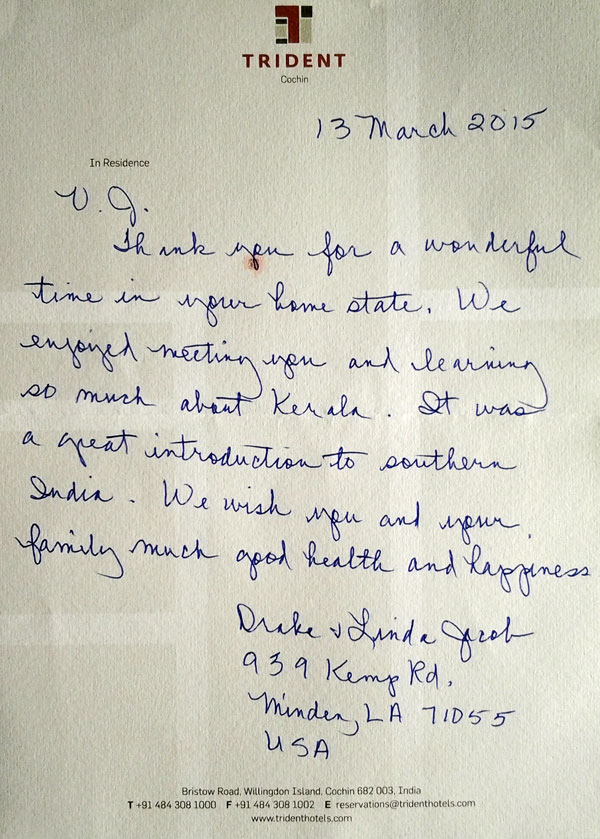 TRIDENT
Cochin
13 March 2015
In Residence
V. J.
Thank you for a wonderful
time in your home state. We
enjoyed meeting you and learning
so much about Kerala. It was
a great introduction to southern
India. We wish you and your
family much good health and happiness
Drake & Linda Jacob
939 Kemp Rd.
Minden, LA 71055
USA
Bristow Road, Willingdon Island, Cochin 682 003, India
T +91 484 308 1000 F +91 484 308 1002 E reservations@tridenthotels.com
www.tridenthotels.com